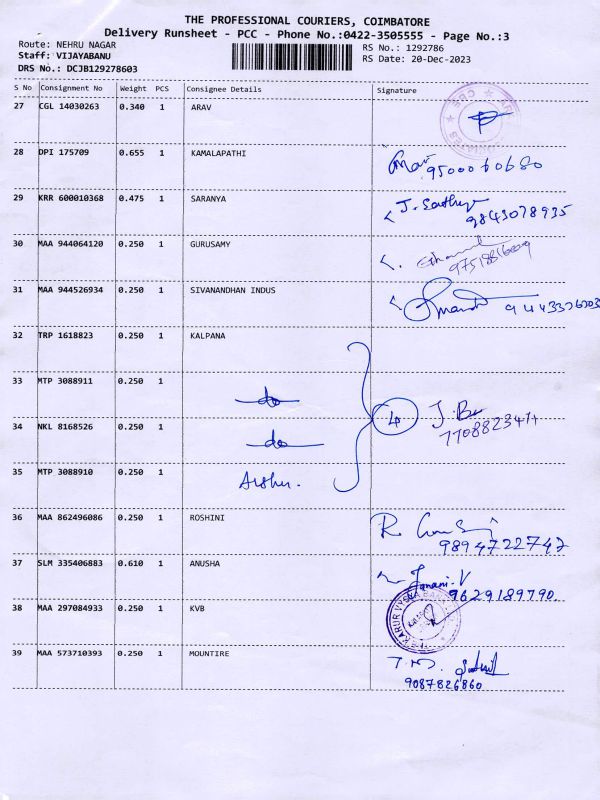 THE PROFESSIONAL COURIERS, COIMBATORE
Delivery Runsheet - PCC - Phone No.:0422-3505555 - Page No.:3
Route: NEHRU NAGAR
Staff: VIJAYABANU
DRS No.: DCJB129278603
RS No.: 1292786
RS Date: 20-Dec-2023
S No Consignment No Weight PCS Consignee Details Signature
27 CGL 14030263 0.340 1 ARAV
28 DPI 175709 0.655 1 KAMALAPATHI
9500060680
29 KRR 600010368 0.475 1 SARANYA
J. Sathya
9843078935
30 MAA 944064120 0.250 1 GURUSAMY
31 MAA 944526934 0.250 1 SIVANANDHAN INDUS
32 TRP 1618823 0.250 1 KALPANA
33 MTP 3088911 0.250 1 do
34 NKL 8168526 0.250 1 do
4
35 MTP 3088910 0.250 1
36 MAA 862496086 0.250 1 ROSHINI
9894722747
37 SLM 335406883 0.610 1 ANUSHA
Janani.V
9629189790
38 MAA 297084933 0.250 1 KVB
39 MAA 573710393 0.250 1 MOUNTIRE
9087826860